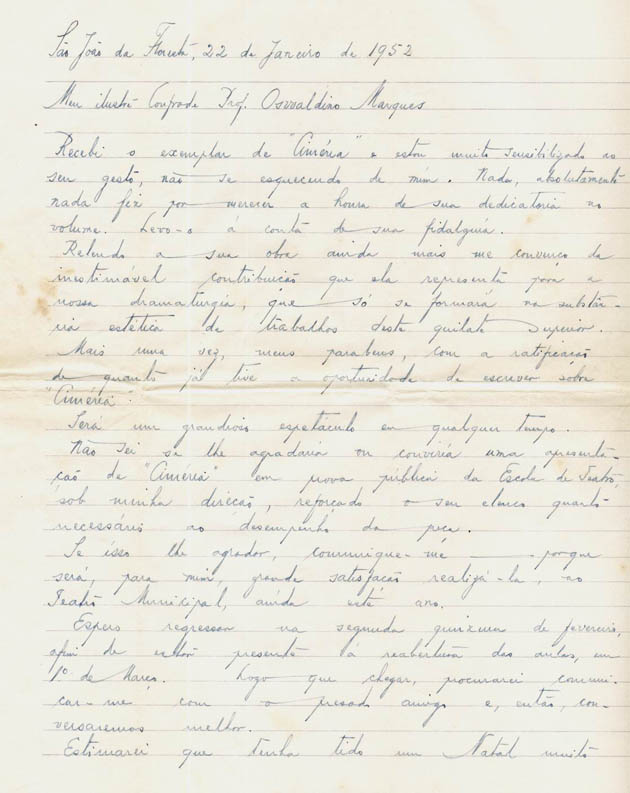 São João da Floresta, 22 de Janeiro de 1952
Meu ilustre Confrade Prof. Osvaldino Marques
Recebi o exemplar de "Ciméria" e estou muito sensibilizado ao
seu gesto, não se esquecendo de mim. Nada, absolutamente
nada fiz por merecer a honra de sua dedicatoria no
volume. Levo-o á conta de sua fidalguia.
Relendo a sua obra ainda mais me convenço da
inestimável contribuição que ela representa para a
nossa dramaturgia, que só se formará na substân-
cia estética de trabalhos deste quilate superior.
Mais uma vez, meus parabens, com a ratificação
de quanto já tive a oportunidade de escrever sobre
"Ciméria".
Será um grandioso espetáculo em qualquer tempo.
Não sei se lhe agradaria ou conviria uma apresenta-
ção de "Ciméria" em prova pública da Escola de Teatro,
sob minha direcão, reforçado o seu elenco quanto
necessário ao desempenho da peça.
Se isso lhe agradar, comunique-me porque
será, para mim, grande satisfação realizá-la, no
Teatro Municipal, ainda este ano.
Espero regressar na segunda quinzena de fevereiro,
afim de estar presente á reabertura das aulas, em
1º de Março. Logo que chegar, procurarei comuni-
car-me com o presado amigo e, então, con-
versaremos melhor.
Estimarei que tenha tido um Natal muito